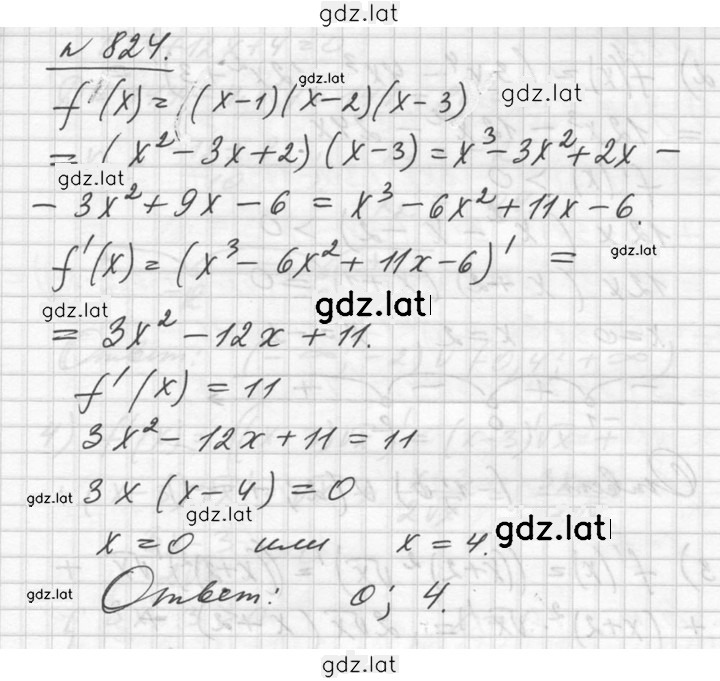 gdz.lat
№ 824.
gdz.lat
f'(x) = (x-1)(x-2)(x-3)
gdz.lat
= (x² - 3x + 2)(x - 3) = x³ - 3x² + 2x -
gdz.lat
- 3x² + 9x - 6 = x³ - 6x² + 11x - 6.
f'(x) = (x³ - 6x² + 11x - 6)' =
gdz.lat
gdz.lat
gdz.lat
= 3x² - 12x + 11.
f'(x) = 11
3x² - 12x + 11 = 11
gdz.lat
3x(x - 4) = 0
gdz.lat
x = 0 или x = 4.
gdz.lat
gdz.lat
Ответ: 0; 4.
gdz.lat